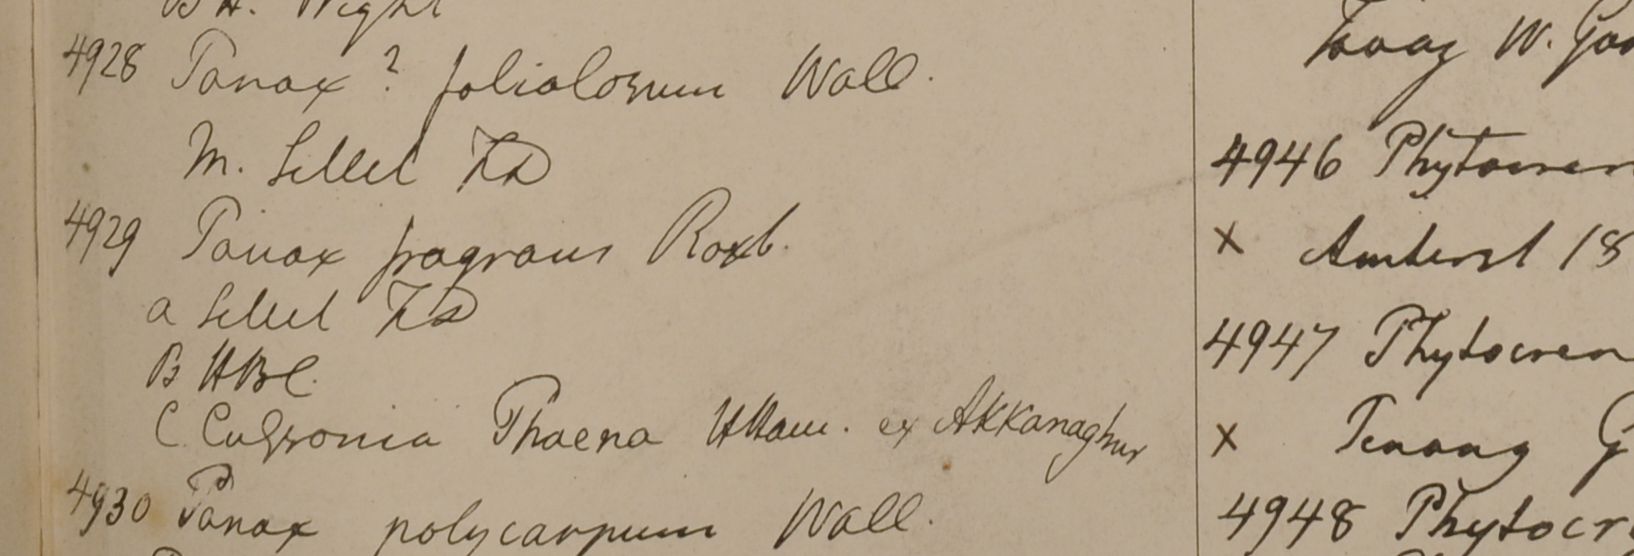 B H. Wight
4928 Panax ? foliolosum Wall.
M. Sillet FD
4929 Panax fragrans Roxb.
a Sillet FD
B HBC.
C Panax Phaena HHam. ex Akkanaghur
4930 Panax polycarpum Wall.
W. Goo
4946 Phytocren
x Amherst 18
4947 Phytocren
x Penang G
4948 Phytocr